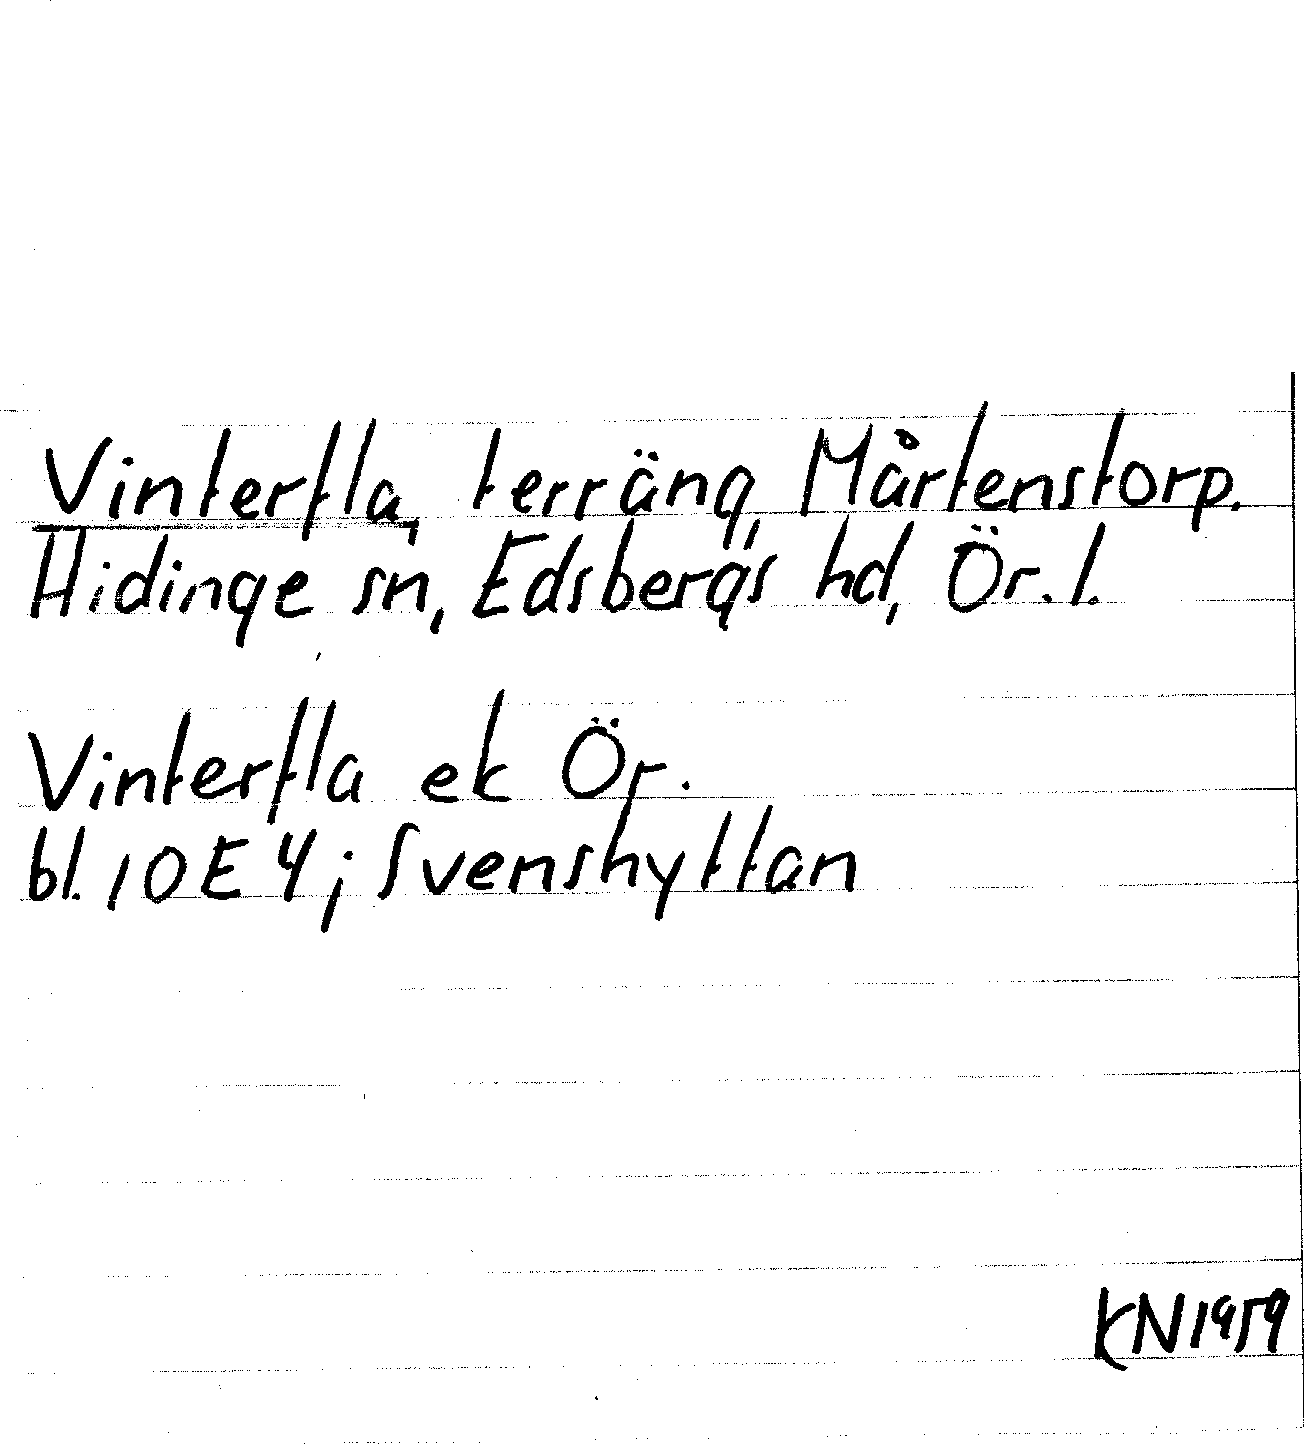 Vinterfla, terräng, Mårtenstorp.
Hidinge sn, Edsbergs hd, Ör. l.
Vinterfla ek Ör.
bl. 10E4; Svenshyttan
KN1959